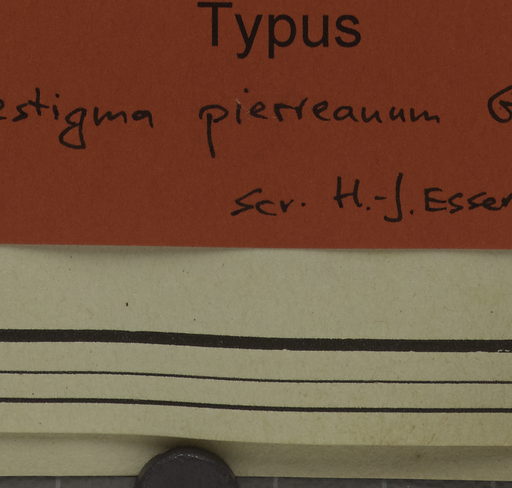 Typus
estigma pierreanum G
scr. H.-J. Esser